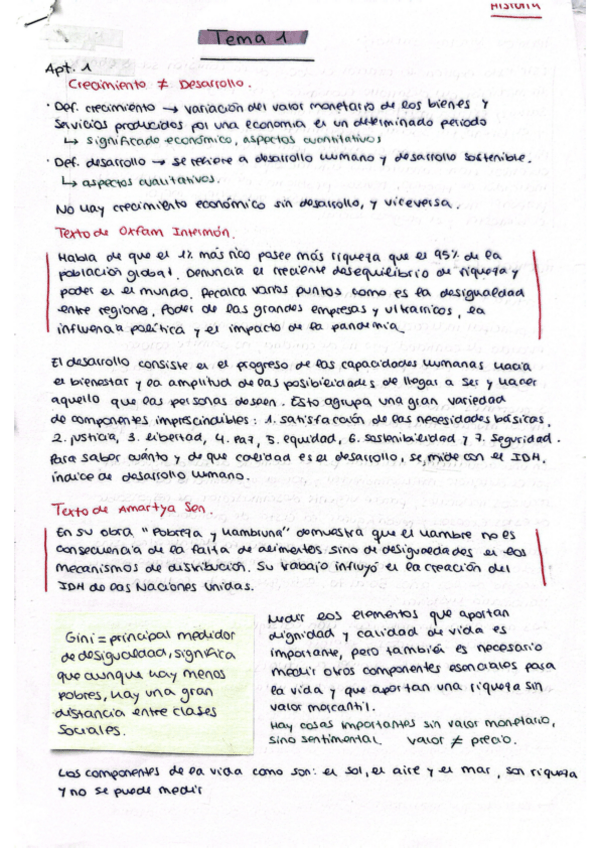 HISTORIA
Tema 1
Apt. 1
Crecimiento ≠ Desarrollo.
· Def. crecimiento → variación del valor monetario de los bienes y
servicios producidos por una economía en un determinado período
↳ significado económico, aspectos cuantitativos
· Def. desarrollo → se refiere a desarrollo humano y desarrollo sostenible.
↳ aspectos cualitativos.
No hay crecimiento económico sin desarrollo, y viceversa.
Texto de Oxfam Intermón.
Habla de que el 1% más rico posee más riqueza que el 95% de la
población global. Denuncia el creciente desequilibrio de riqueza y
poder en el mundo. Recalca varios puntos como es la desigualdad
entre regiones, Poder de las grandes empresas y ultrarricos, la
influencia política y el impacto de la pandemia.
El desarrollo consiste en el progreso de las capacidades humanas hacia
el bienestar y la amplitud de las posibilidades de llegar a ser y hacer
aquello que las personas deseen. Esto agrupa una gran variedad
de componentes imprescindibles: 1. satisfacción de las necesidades básicas,
2. justicia, 3. libertad, 4. Paz, 5. equidad, 6. sostenibilidad y 7. Seguridad.
Para saber cuánto y de que calidad es el desarrollo, se mide con el IDH,
índice de desarrollo humano.
Texto de Amartya Sen.
En su obra, "Pobreza y hambruna" demuestra que el hambre no es
consecuencia de la falta de alimentos sino de desigualdades en los
mecanismos de distribución. Su trabajo influyó en la creación del
IDH de las Naciones Unidas.
Gini = principal medidor
de desigualdad, significa
que aunque hay menos
pobres, hay una gran
distancia entre clases
sociales.
Medir los elementos que aportan
dignidad y calidad de vida es
importante, pero también es necesario
medir otros componentes esenciales para
la vida y que aportan una riqueza sin
valor mercantil.
Hay cosas importantes sin valor monetario,
sino sentimental. valor ≠ precio.
Los componentes de la vida como son: el sol, el aire y el mar, son riqueza
y no se puede medir